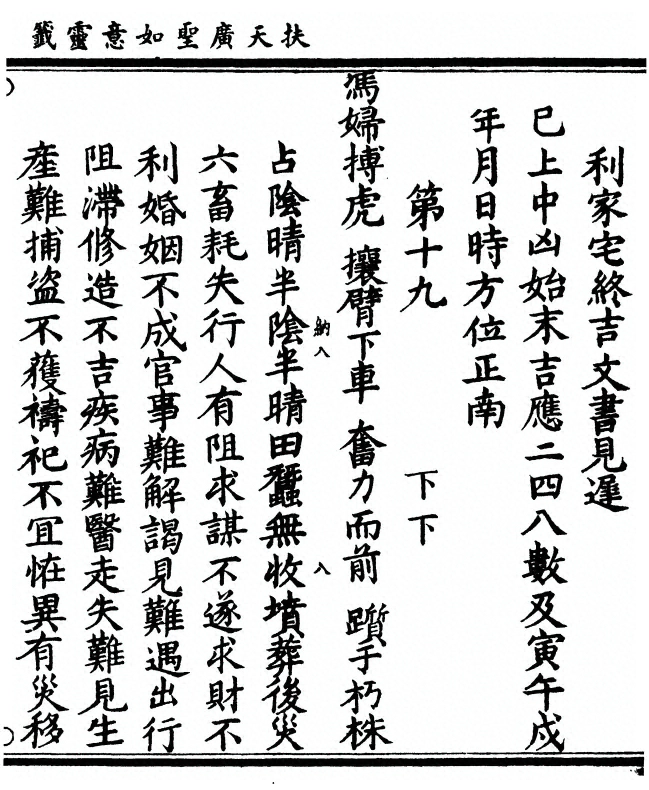 扶天廣聖如意靈籤
利家宅終吉文書見遲
已上中凶始末吉應二四八數及寅午戍
年月日時方位正南
第十九 下下
馮婦搏虎 攘臂下車 奮力而前 躓于朽株
占陰晴半陰半晴田蠶無收墳葬後災
納入 入
六畜耗失行人有阻求謀不遂求財不
利婚姻不成官事難解謁見難遇出行
阻滯修造不吉疾病難醫走失難見生
產難捕盜不獲禱祀不宜恠異有災移